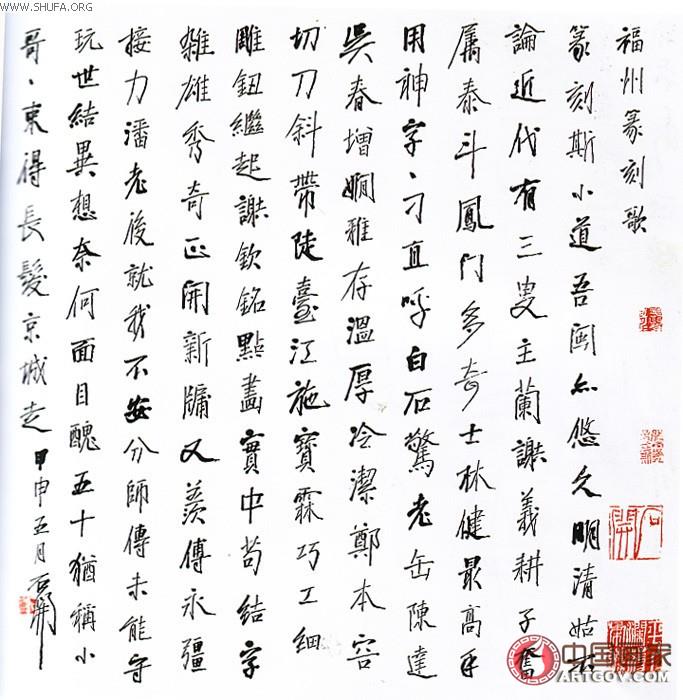 WWW.SHUFA.ORG
福州篆刻歌
篆刻斯小道吾閩亦悠久明清姑不
論近代有三叟主蘭謝義耕子奮
屬泰斗鳳門多奇士林健最高手
用神字、刁直呼白石驚老缶陳達
吳春增嫻雅存溫厚冷潔鄭本容
切刀斜帶陡臺江施寶霖巧工細
雕鈕繼起謝欽銘點畫實中苟結字
雜雄秀奇正開新牖又羨傳永彊
接力潘老後就我不安分師傳未能守
玩世結異想奈何面目醜五十猶稱小
哥、束得長髮京城走甲申五月石開
石開
中国画家
ARTGOV.COM